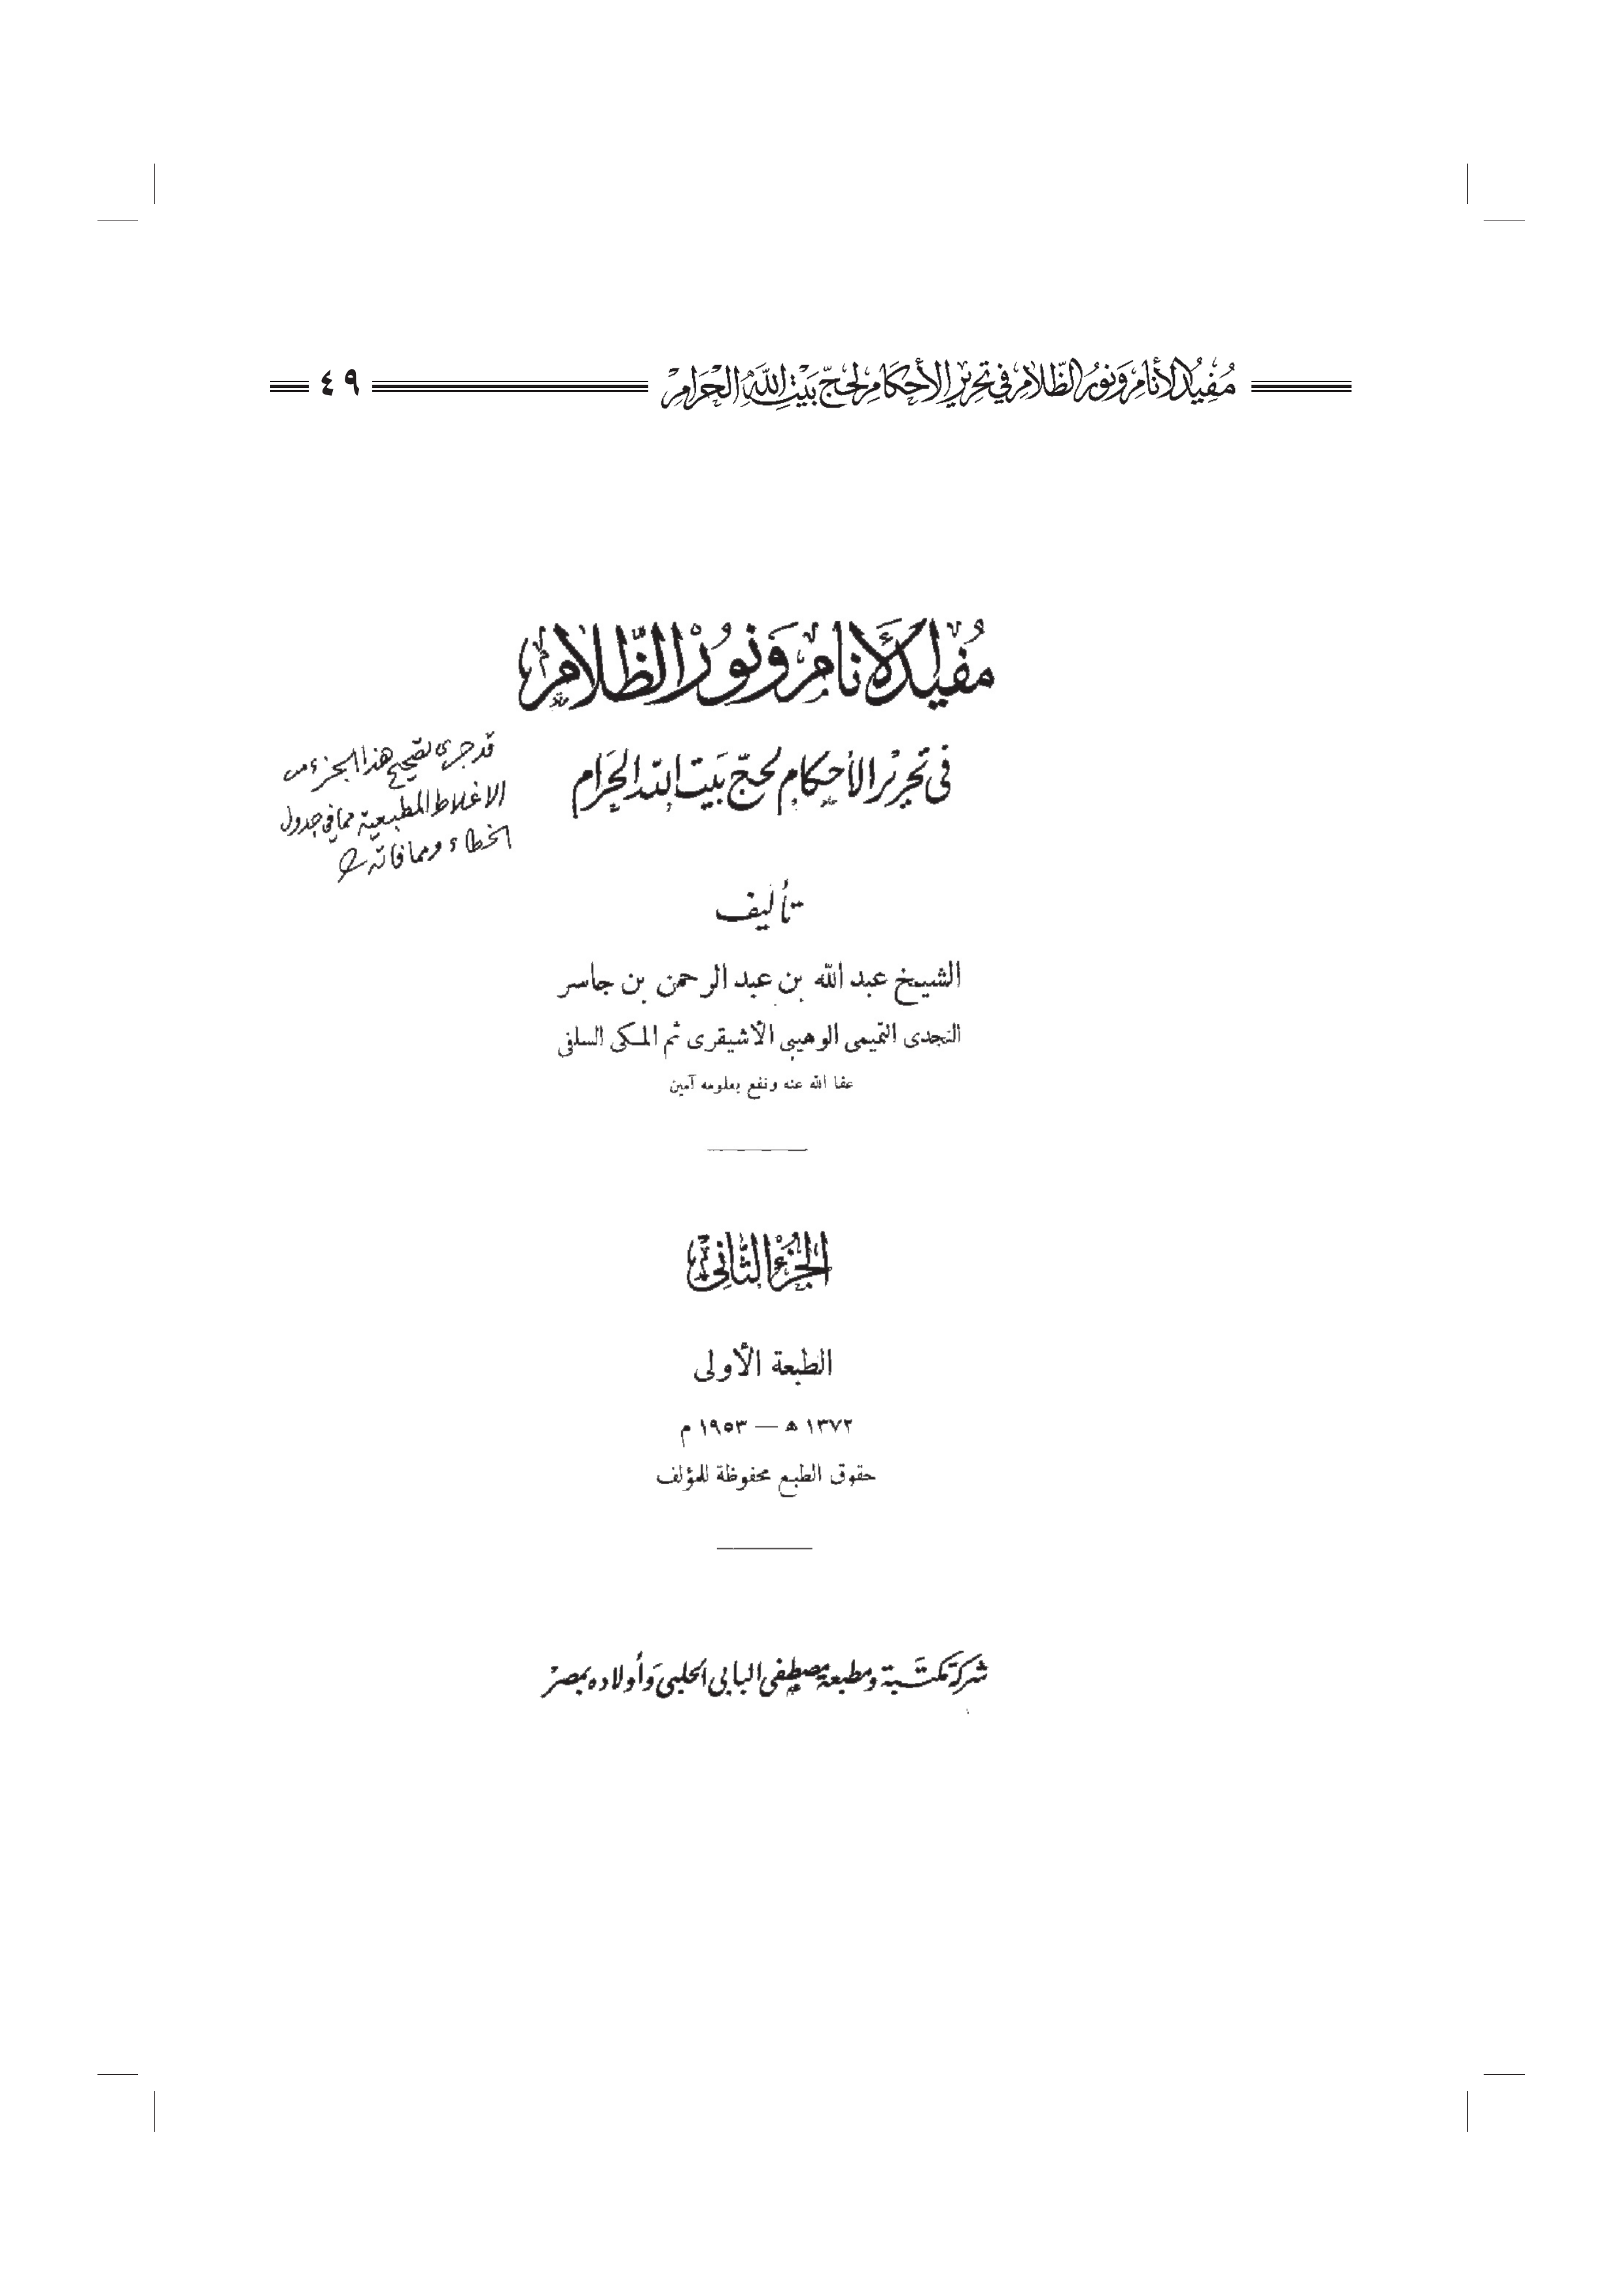 مُفِيدُ الأَنَامِ وَنُورُ الظَّلَامِ فِي تَحْرِيرِ الأَحْكَامِ لِحَجِّ بَيْتِ اللَّهِ الْحَرَامِ ٤٩
مُفيد الأنام وَنورُ الظّلام
فى تحرير الأحكام لحجّ بَيت الله الحَرام
قد جرى تصحيح هذا الجزء من
الاغلاط المطبعية مما في جدول
الخطاء ومما فاته
تأليف
الشيخ عبد الله بن عبد الرحمن بن جاسر
النجدى التميمى الوهيبى الأشيقرى ثم المكى السلفى
عفا الله عنه ونفع بعلومه آمين
الجزء الثانى
الطبعة الأولى
١٣٧٢ ھ — ١٩٥٣ م
حقوق الطبع محفوظة للمؤلف
شركة مكتبة ومطبعة مصطفى البابى الحلبى وأولاده بمصر